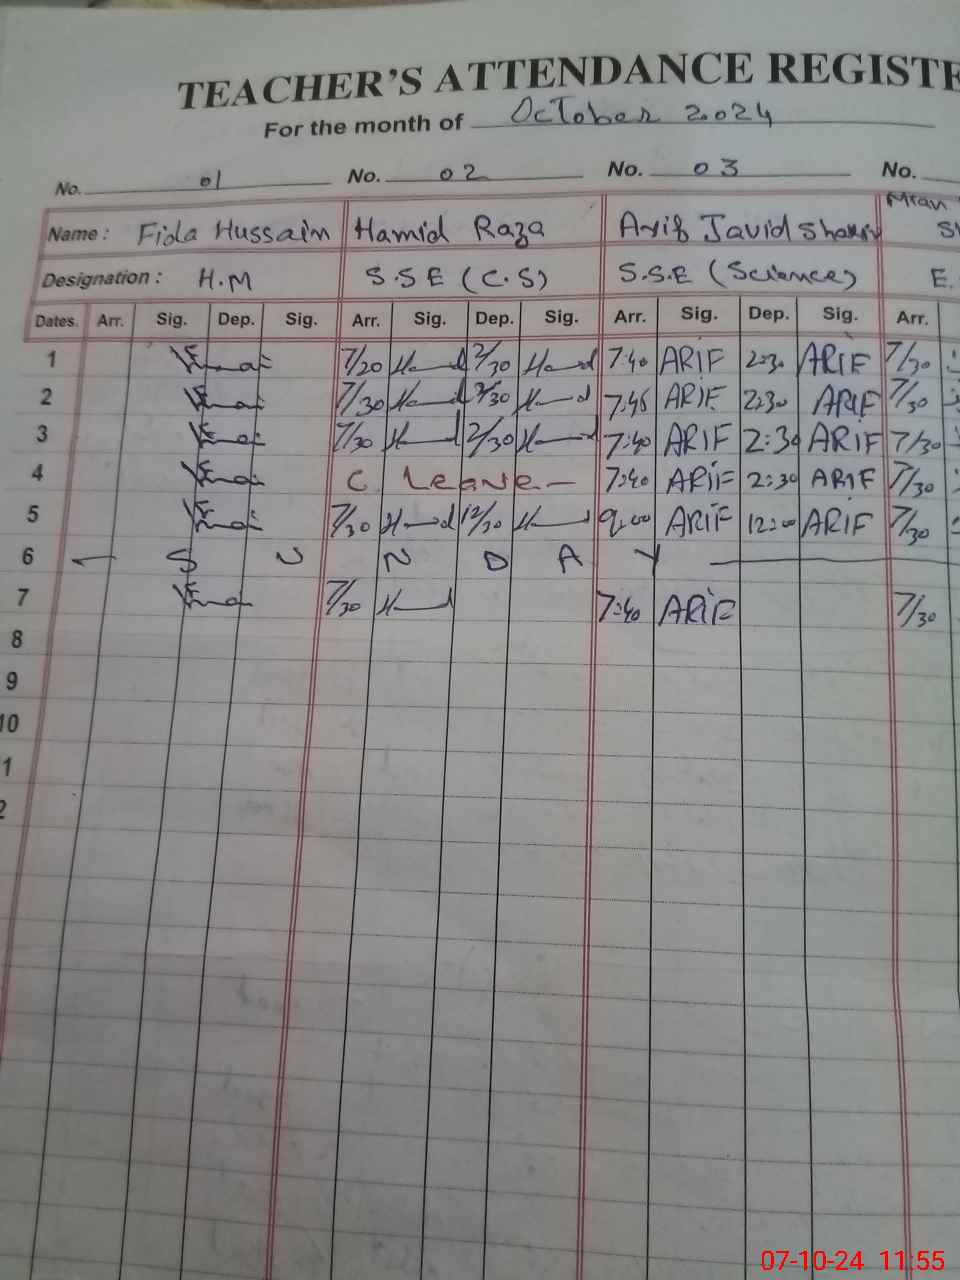 TEACHER'S ATTENDANCE REGISTE
For the month of October 2024
No. 01 No. 02 No. 03 No.
Name: Fida Hussain Hamid Raza Arif Javid Mian
Designation: H.M S.S.E (C.S) S.S.E (Science) E.
Dates. Arr. Sig. Dep. Sig. Arr. Sig. Dep. Sig. Arr. Sig. Dep. Sig. Arr.
1 7/20 2/30 7:40 ARIF 2:30 ARIF 7/30
2 7/30 2/30 7:45 ARIF 2:30 ARIF 7/30
3 7/30 2/30 7:40 ARIF 2:30 ARIF 7/30
4 C. Leave - 7:40 ARIF 2:30 ARIF 7/30
5 7/30 12/30 9:00 ARIF 12:00 ARIF 7/30
6 - S U N D A Y
7 7/30 7:40 ARIF 7/30
8
9
10
1
2
07-10-24 11:55